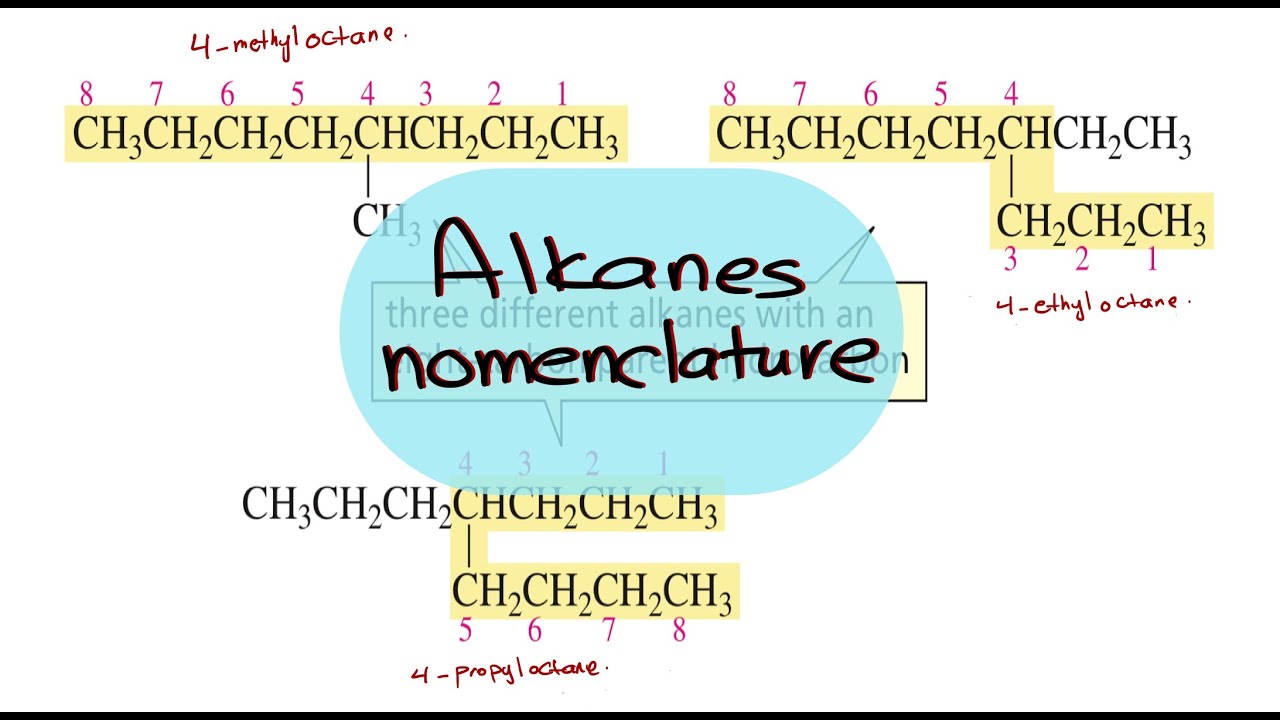 4-methyloctane.
8 7 6 5 4 3 2 1
CH₃CH₂CH₂CH₂CHCH₂CH₂CH₃
CH₃
8 7 6 5 4
CH₃CH₂CH₂CH₂CHCH₂CH₃
CH₂CH₂CH₃
3 2 1
4-ethyloctane.
Alkanes
nomenclature
three different alkanes with an
eight-carbon parent hydrocarbon
4 3 2 1
CH₃CH₂CH₂CHCH₂CH₂CH₃
CH₂CH₂CH₂CH₃
5 6 7 8
4-propyloctane.